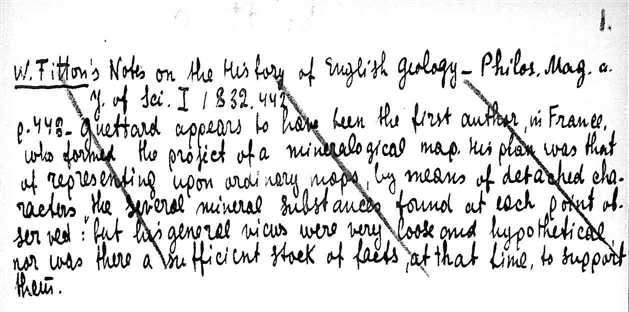 1.
W. Fitton's Notes on the History of English Geology – Philos. Mag. a.
J. of Sci. I 1832. 442
p. 442 – Guettard appears to have been the first author, in France,
who formed the project of a mineralogical map. His plan was that
of representing upon ordinary maps, by means of detached cha-
racters "the several mineral substances found at each point ob-
served: but his general views were very loose and hypothetical,
nor was there a sufficient stock of facts, at that time, to support
them.